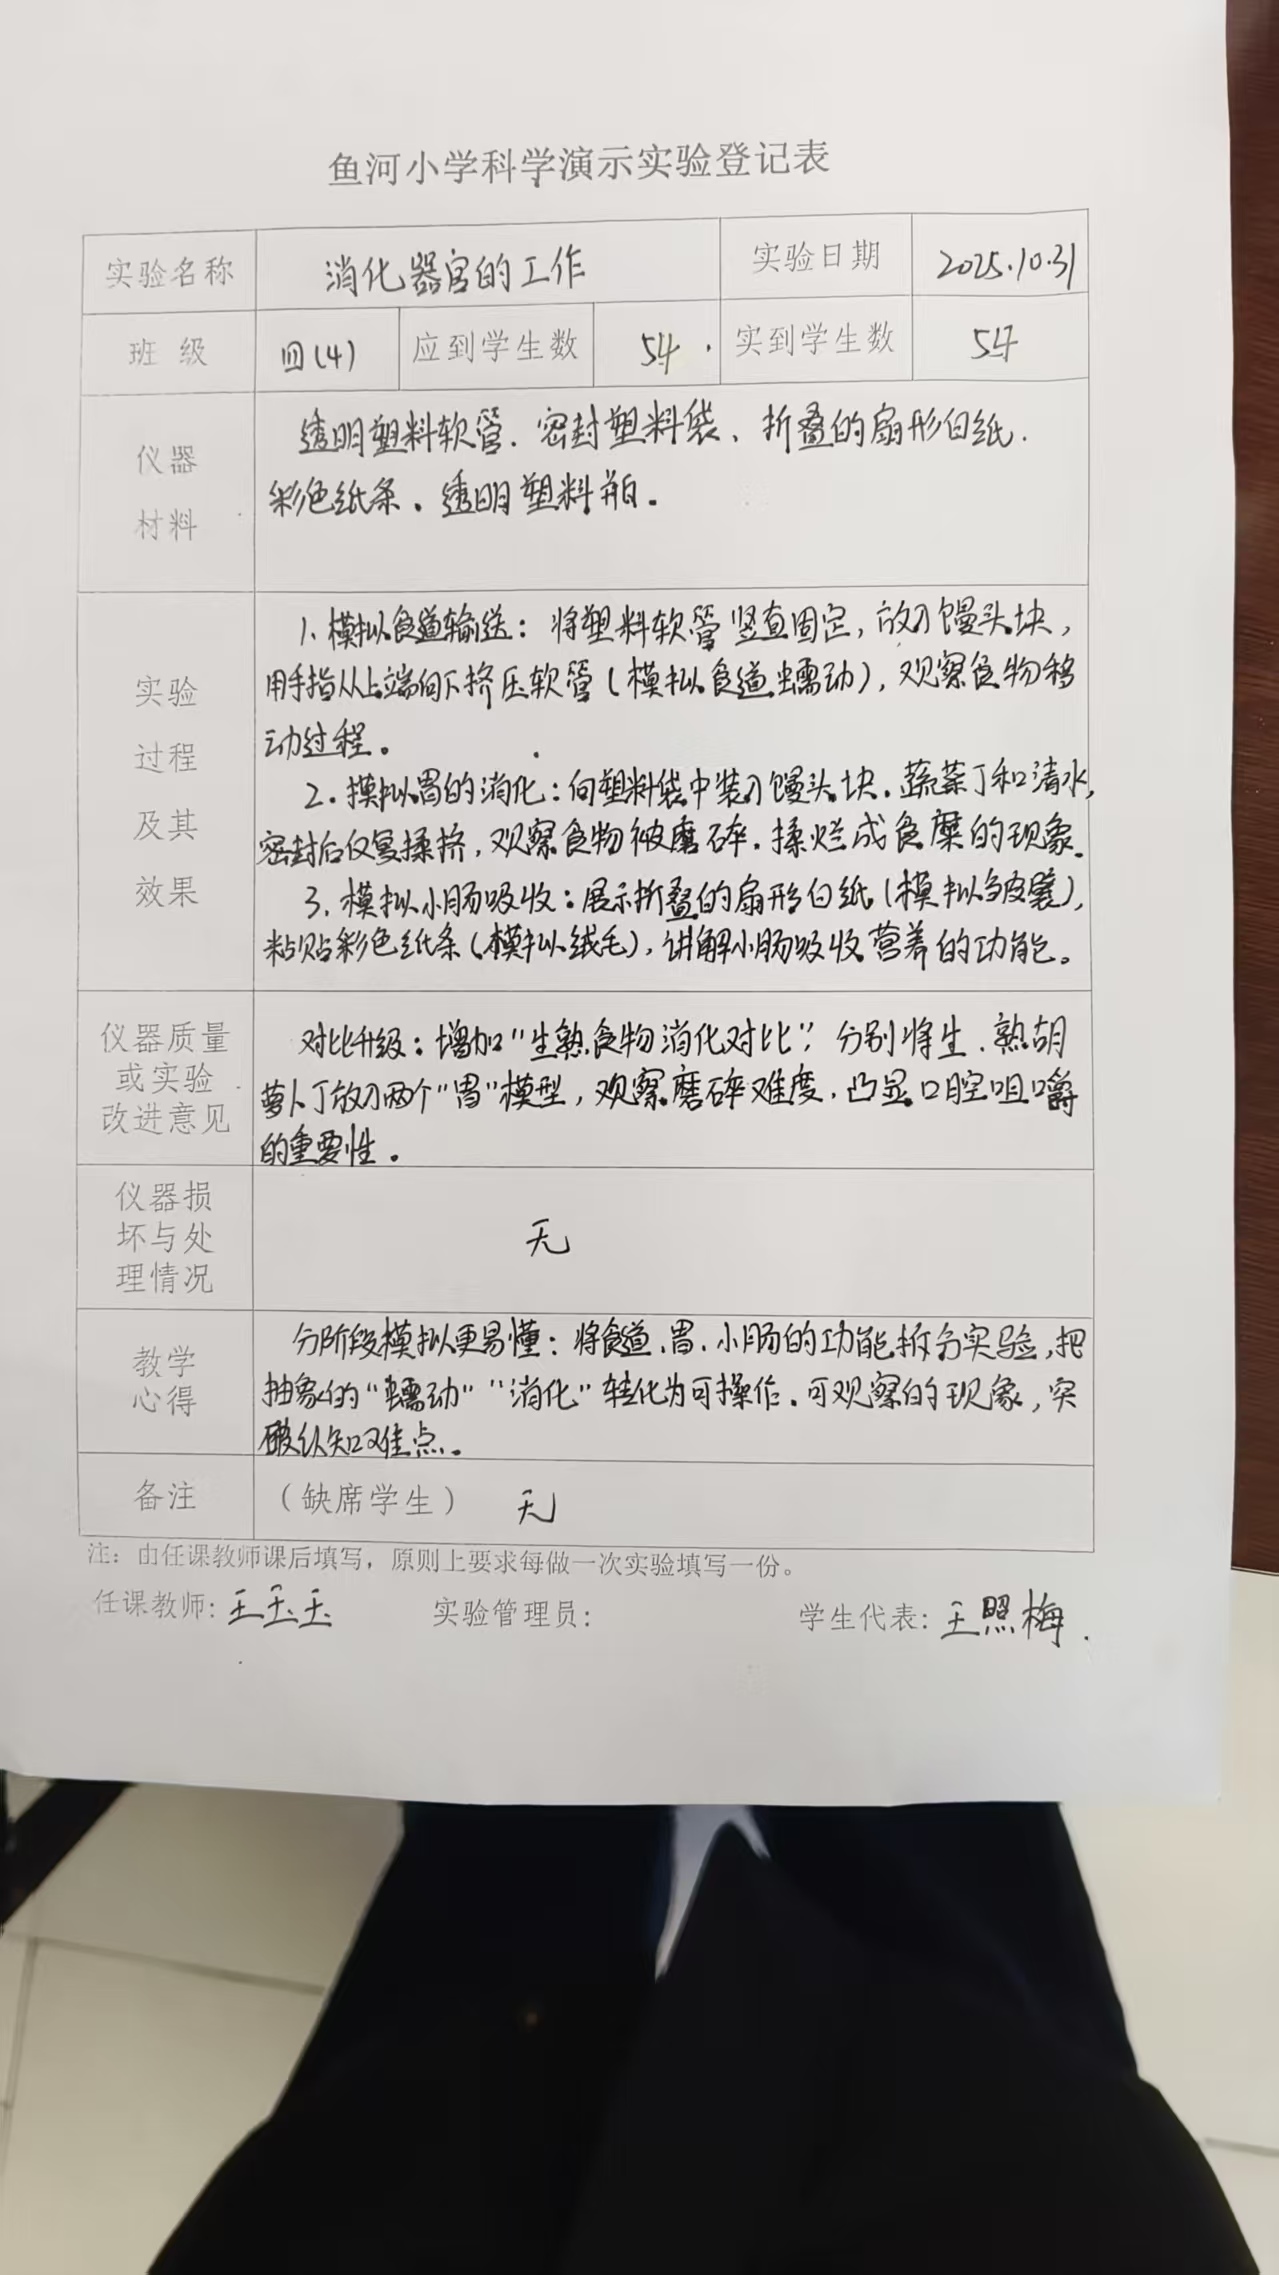 鱼河小学科学演示实验登记表
实验名称 消化器官的工作 实验日期 2025.10.31
班 级 四(4) 应到学生数 54 实到学生数 54
仪器
材料
透明塑料软管、密封塑料袋、折叠的扇形白纬.
彩色纸条、透明塑料
实验
过程
及其
效果
1. 模拟食道输送：将塑料软管竖直固定，放入馒头块，
用手指从上端向下挤压软管(模拟食道蠕动)，观察食物移
动过程。
2. 模拟胃的消化：向塑料袋中装入馒头块、蔬菜丁和清水，
密封后反复揉挤，观察食物被磨碎、揉烂成食糜的现象.
3. 模拟小肠吸收：展示折叠的扇形白纸(模拟皱襞)，
粘贴彩色纸条(模拟绒毛)，讲解小肠吸收营养的功能。
仪器质量
或实验
改进意见
对比升级：增加“生熟食物消化对比”，分别将生、熟胡
萝卜丁放入两个“胃”模型，观察磨碎难度，凸显口腔咀嚼
的重要性。
仪器损
坏与处
理情况
无
教学
心得
分阶段模拟更易懂：将食道、胃、小肠的功能拆分实验，把
抽象的“蠕动”“消化”转化为可操作、可观察的现象，突
破认知难点。
备注 （缺席学生） 无
注：由任课教师课后填写，原则上要求每做一次实验填写一份。
任课教师: 王玉玉 实验管理员: 学生代表: 王照梅.